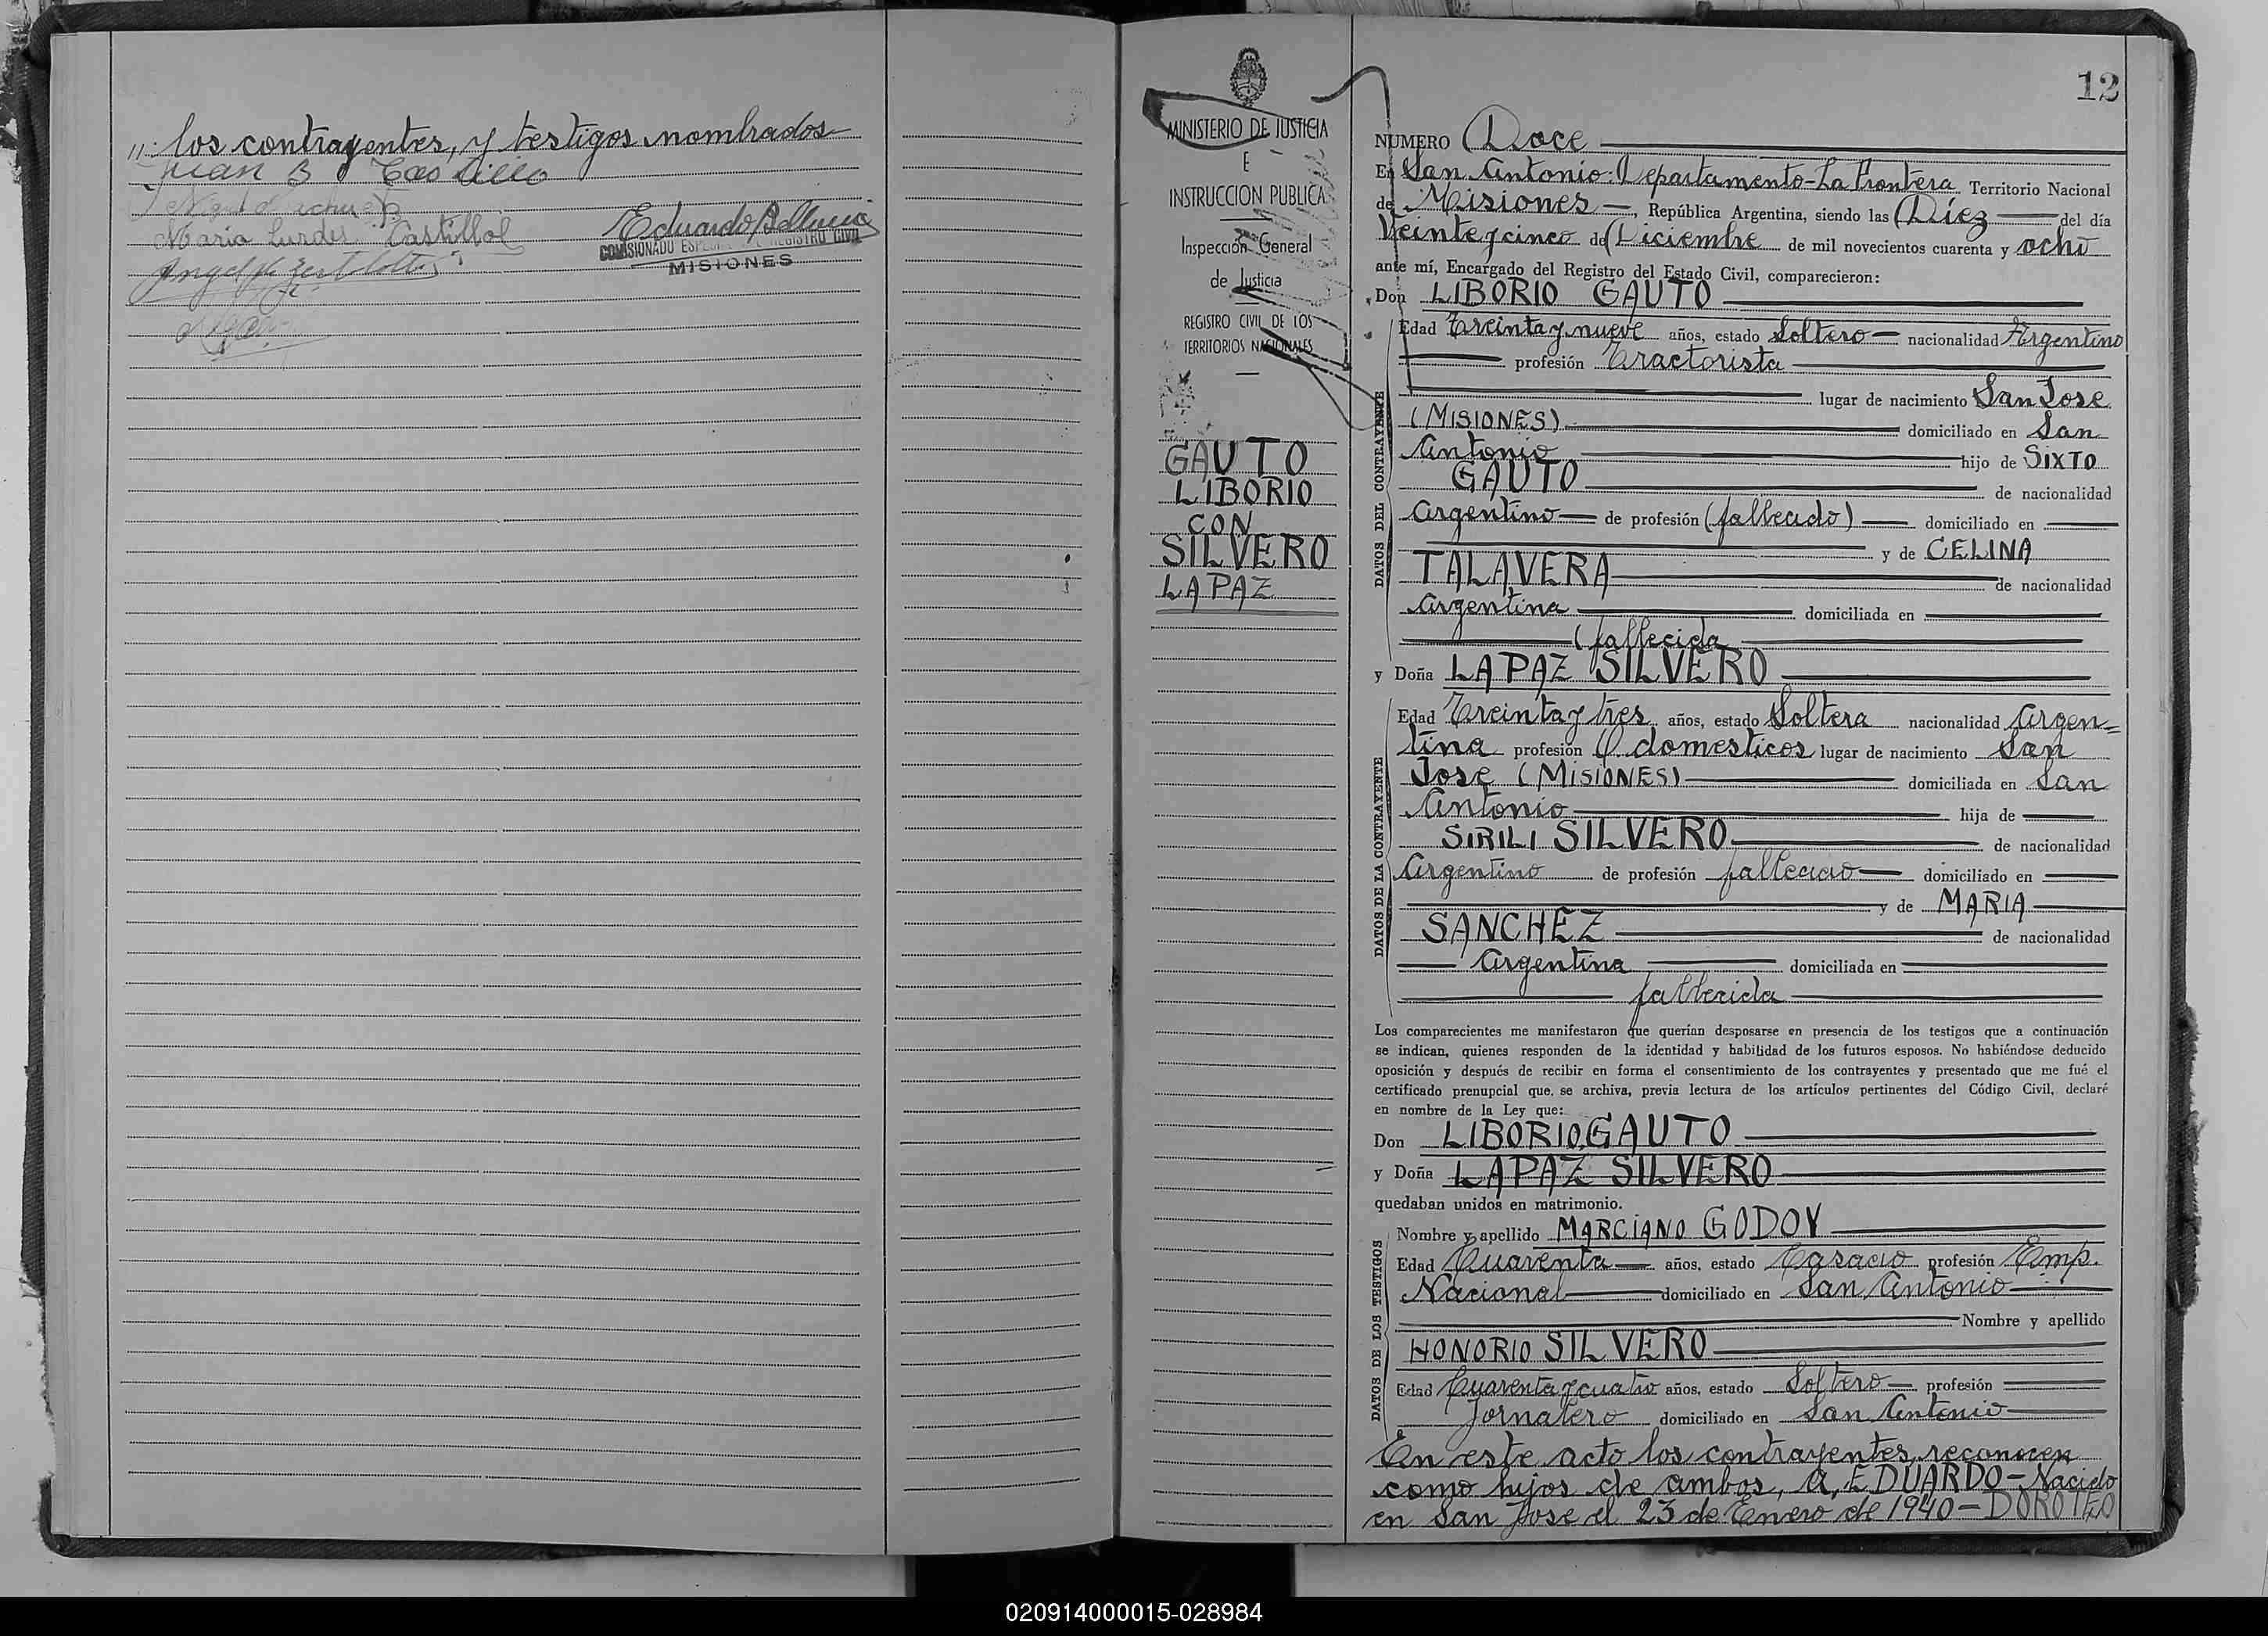 los contrayentes, y testigos nombrados
Juan B Castillo
Maria Lurdes Castillo
Eduardo
COMISIONADO ESPECIAL REGISTRO CIVIL
MISIONES
MINISTERIO DE JUSTICIA
E
INSTRUCCION PUBLICA
Inspección General
de Justicia
REGISTRO CIVIL DE LOS
TERRITORIOS NACIONALES
GAUTO
LIBORIO
CON
SILVERO
LA PAZ
12
NUMERO Doce
En San Antonio: Departamento-La Frontera Territorio Nacional
de Misiones, República Argentina, siendo las Diez del día
Veinte y cinco de Diciembre de mil novecientos cuarenta y ocho
ante mí, Encargado del Registro del Estado Civil, comparecieron:
Don LIBORIO GAUTO
DATOS DEL CONTRAYENTE
Edad Treinta y nueve años, estado Soltero nacionalidad Argentino
profesión Tractorista
lugar de nacimiento San Jose
(MISIONES) domiciliado en San
Antonio hijo de SIXTO
GAUTO de nacionalidad
Argentino de profesión (fallecido) domiciliado en
y de CELINA
TALAVERA de nacionalidad
Argentina domiciliada en
(fallecida
y Doña LA PAZ SILVERO
DATOS DE LA CONTRAYENTE
Edad Treinta y tres años, estado Soltera nacionalidad Argen=
tina profesión Q. domesticos lugar de nacimiento San
Jose (MISIONES) domiciliada en San
Antonio hija de
SIRILI SILVERO de nacionalidad
Argentino de profesión fallecido domiciliado en
y de MARIA
SANCHEZ de nacionalidad
Argentina domiciliada en
fallecida
Los comparecientes me manifestaron que querían desposarse en presencia de los testigos que a continuación
se indican, quienes responden de la identidad y habilidad de los futuros esposos. No habiéndose deducido
oposición y después de recibir en forma el consentimiento de los contrayentes y presentado que me fué el
certificado prenupcial que, se archiva, previa lectura de los artículos pertinentes del Código Civil, declaré
en nombre de la Ley que:
Don LIBORIO GAUTO
y Doña LA PAZ SILVERO
quedaban unidos en matrimonio.
DATOS DE LOS TESTIGOS
Nombre y apellido MARCIANO GODOY
Edad Cuarenta años, estado Casado profesión Emp.
Nacional domiciliado en San Antonio
Nombre y apellido
HONORIO SILVERO
Edad Cuarenta y cuatro años, estado Soltero profesión
Jornalero domiciliado en San Antonio
En este acto los contrayentes, reconocen
como hijos de ambos, a, EDUARDO-Nacido
en San Jose el 23 de Enero de 1940-DOROTEO
020914000015-028984